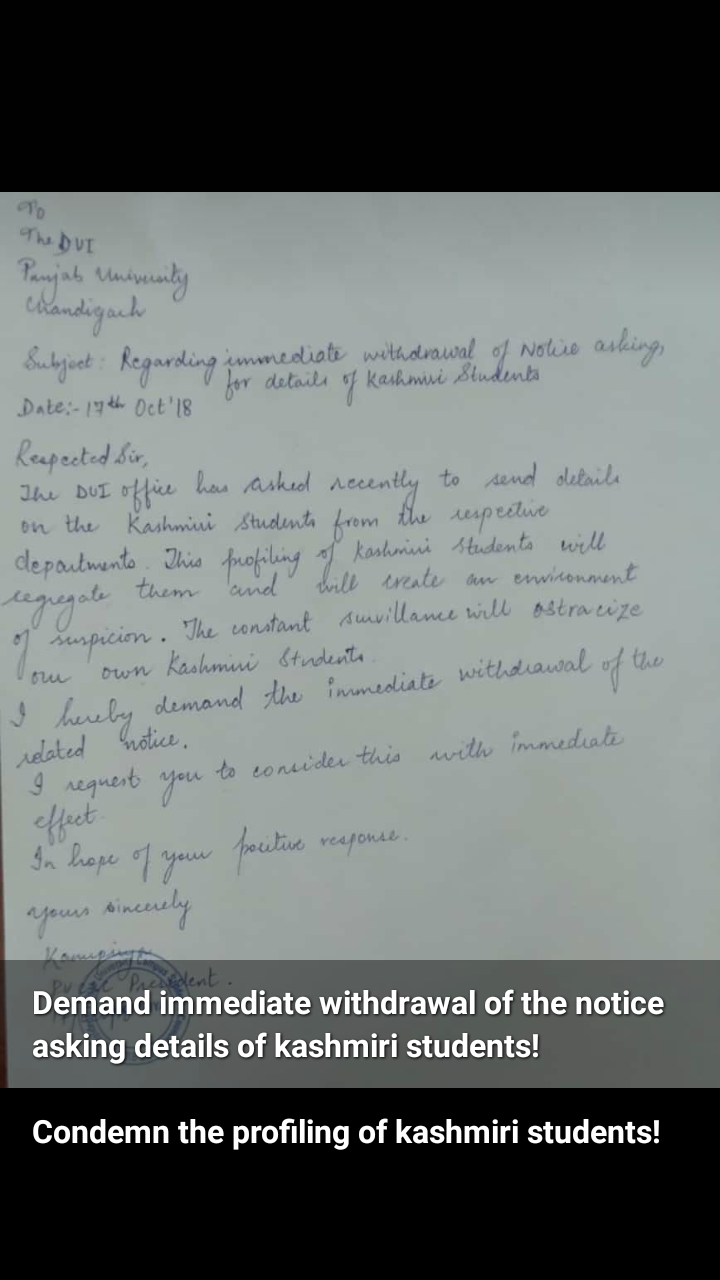 To
The DUI
Panjab University
Chandigarh
Subject: Regarding immediate withdrawal of Notice asking,
for details of Kashmiri Students
Date:- 17th Oct'18
Respected Sir,
The DUI office has asked recently to send details
on the Kashmiri Students from the respective
departments. This profiling of Kashmiri Students will
segregate them and will create an environment
of suspicion. The constant survillance will ostracize
our own Kashmiri Students.
I hereby demand the immediate withdrawal of the
related notice.
I request you to consider this with immediate
effect.
In hope of your positive response.
Yours sincerely
Kanupriya
President.
Demand immediate withdrawal of the notice
asking details of kashmiri students!
Condemn the profiling of kashmiri students!